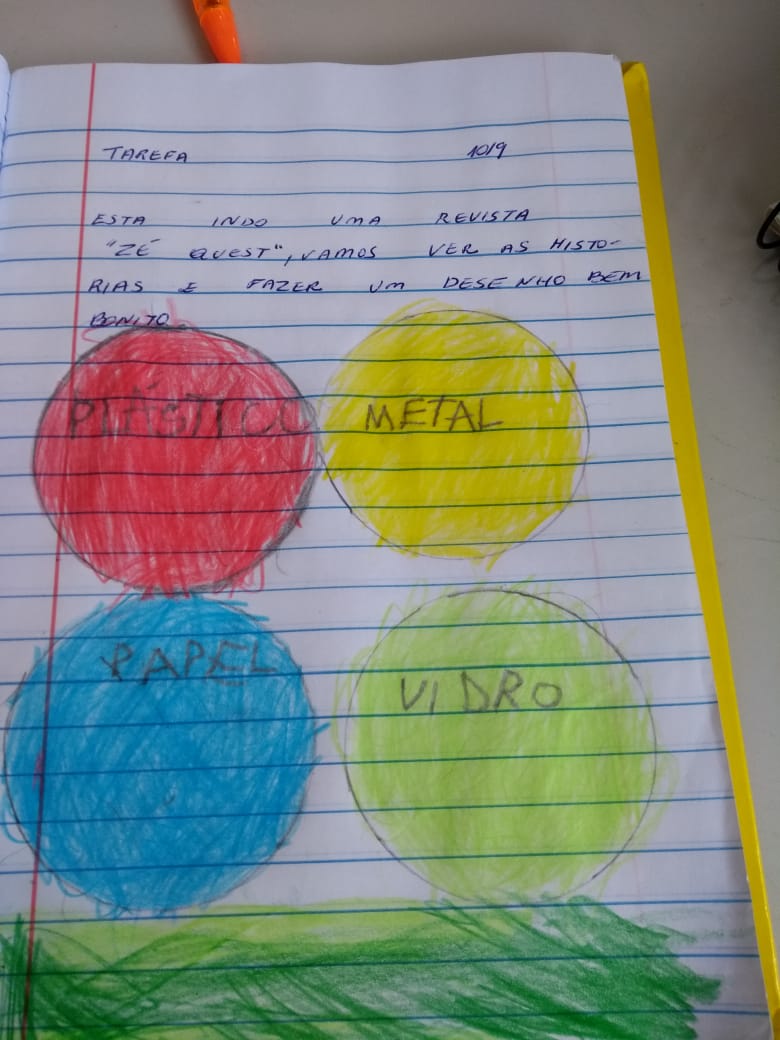 TAREFA 10/9
ESTA INDO UMA REVISTA
"ZÉ QUEST", VAMOS VER AS HISTO-
RIAS E FAZER UM DESENHO BEM
BONITO
PLÁSTICO METAL
PAPEL VIDRO